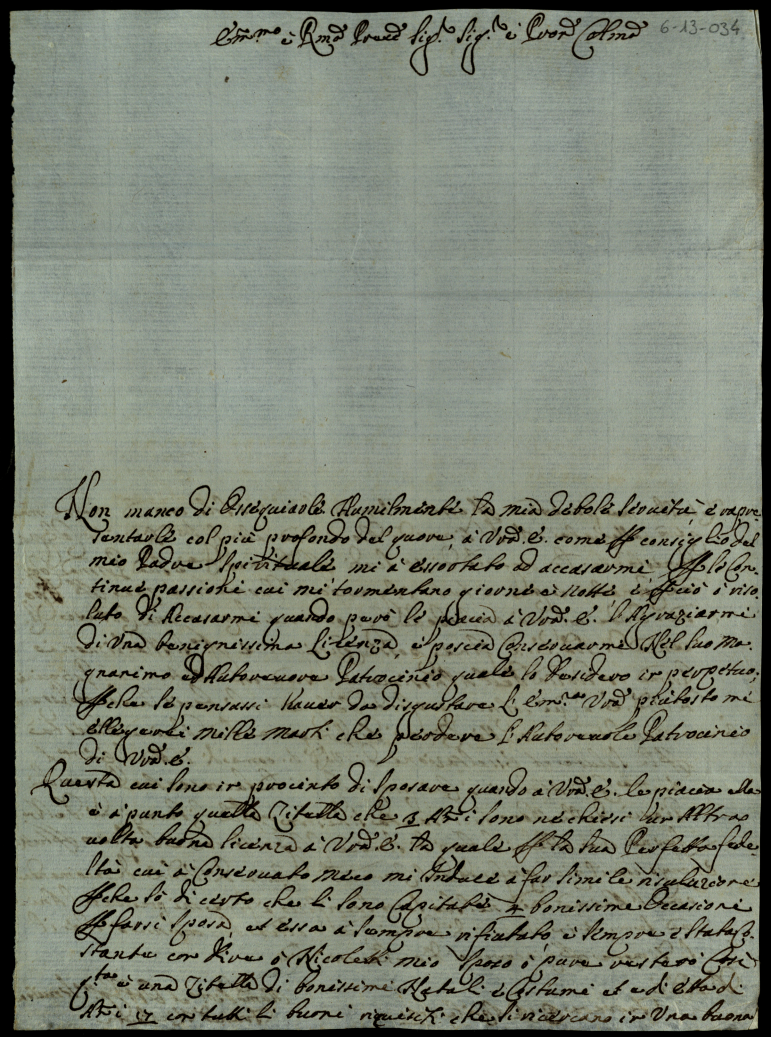 Em.mo è Rmo Prnē Sig.r Sig.r è Pron Colmo 6-13-034
Non manco di Osseguiarle Humilmente la mia debole servitù è rapre
sentarle col più profondo del quore, à Vra. E. come p consiglio del
mio Padre Spirituale mi à essortato ad accasarmi, p le Con
tinue passioni cui mi tormentano giorno e Notte, è p ciò ò riso
luto di Accasarmi quando però le piacia à Vra. E. l'Agraziarmi
di Una benignissima Licenza, è poscia Conservarmi Nel suo Ma
gnanimo ed Autorevore Patrocinio quale lo desidero in perpetuo,
p che se pensassi haver da disgustare L'Em.za Vra piutosto mi
ellegerei mille morti che perdere L'Autorevole Patrocinio
di Vra. E.
Questa cui sono in procinto di Sposare quando à Vra. E. le piacia ella
è à punto quella Zitella che 3 Ani sono ne chiesi un Altra
volta buona licenza à Vra. E. la quale p la sua Perfetta fede
ltà cui à Conservato meco mi Induce à far simile risoluzione
p che sò di certo che li sono Capitate 4 bonissime Occasioni
p farsi Sposa, et essa à sempre rifiutato, è sempre è stata Co
stante con dire ò Nicoletti mio Sposo ò pure restarò Così
q.ta è una Zitella di bonissimi Natali è Costumi et e di età di
Ani 17 con tutti li buoni riquisiti che si ricercano in Una buona